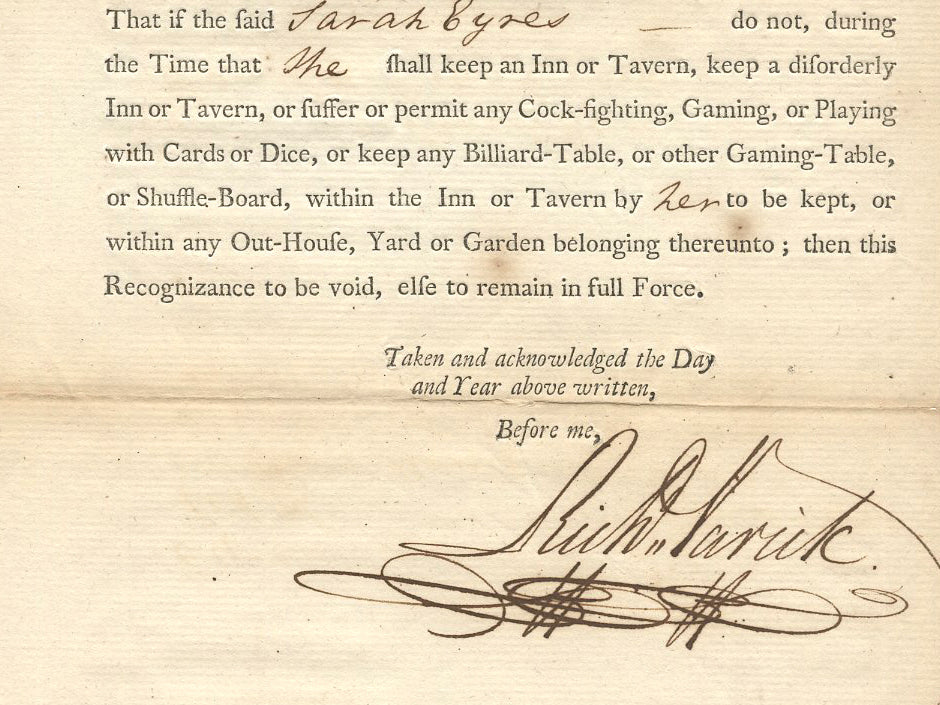 That if the ſaid Sarah Eyres — do not, during
the Time that She ſhall keep an Inn or Tavern, keep a diſorderly
Inn or Tavern, or ſuffer or permit any Cock-fighting, Gaming, or Playing
with Cards or Dice, or keep any Billiard-Table, or other Gaming-Table,
or Shuffle-Board, within the Inn or Tavern by her to be kept, or
within any Out-Houſe, Yard or Garden belonging thereunto ; then this
Recognizance to be void, elſe to remain in full Force.
Taken and acknowledged the Day
and Year above written,
Before me,
Richd Varick.